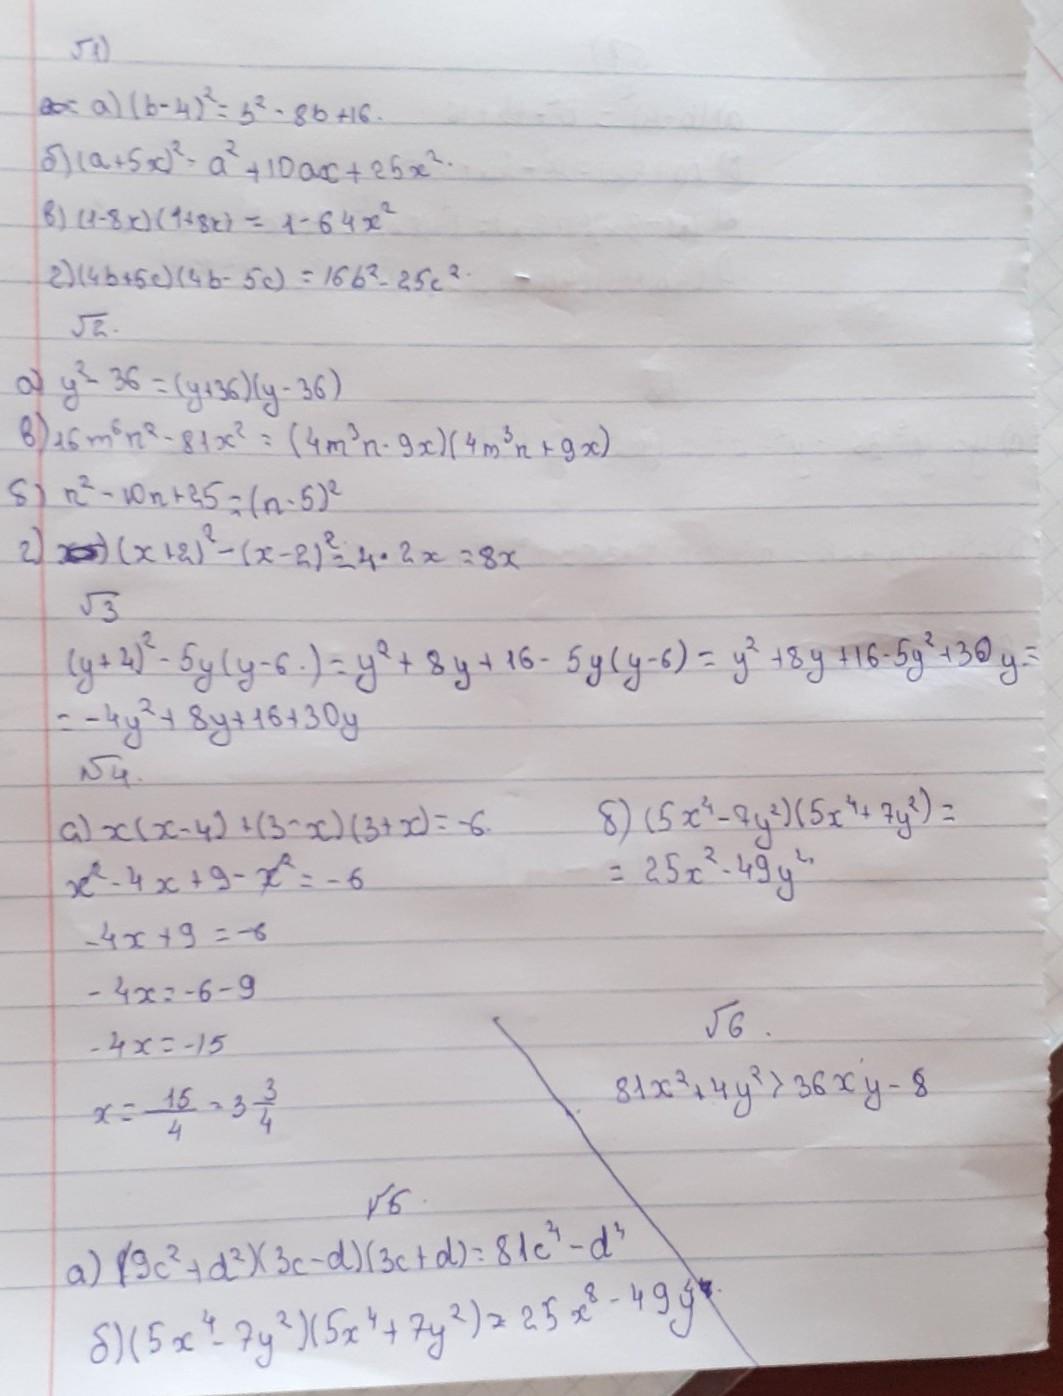 √1)
а) (b-4)² = b² - 8b + 16.
б) (a+5x)² = a² + 10ax + 25x².
в) (1-8x)(1+8x) = 1 - 64x²
г) (4b+5c)(4b-5c) = 16b² - 25c².
√2.
а) y² - 36 = (y+36)(y-36)
в) 16m⁶n² - 81x² = (4m³n - 9x)(4m³n + 9x)
б) n² - 10n + 25 = (n-5)²
г) (x+2)² - (x-2)² = 4 · 2x = 8x
√3
(y+4)² - 5y(y-6.) = y² + 8y + 16 - 5y(y-6) = y² + 8y + 16 - 5y² + 30y =
= -4y² + 8y + 16 + 30y
√4.
а) x(x-4) + (3-x)(3+x) = -6.
x² - 4x + 9 - x² = -6
-4x + 9 = -6
-4x = -6 - 9
-4x = -15
x = 15/4 = 3 3/4
б) (5x⁴ - 7y²)(5x⁴ + 7y²) =
= 25x² - 49y².
√6.
81x² + 4y² > 36xy - 8
√5.
а) (9c² + d²)(3c - d)(3c + d) = 81c⁴ - d⁴
б) (5x⁴ - 7y²)(5x⁴ + 7y²) = 25x⁸ - 49y⁴.